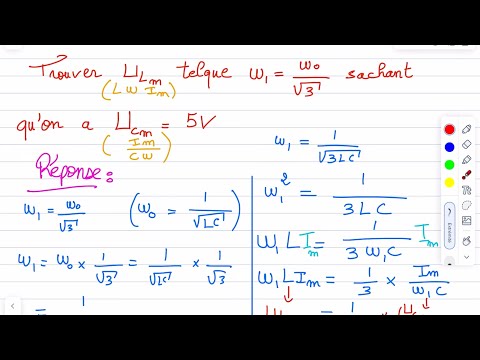 Trouver U_Lm telque ω₁ = ω₀/√3 sachant
(L ω Im)
qu'on a U_Cm = 5V
(Im/Cω)
Réponse :
ω₁ = ω₀/√3 (ω₀ = 1/√LC)
ω₁ = ω₀ × 1/√3 = 1/√LC × 1/√3
ω₁ = 1/√3LC
ω₁² = 1/3LC
ω₁ L Im = 1/3ω₁C Im
ω₁ L Im = 1/3 × Im/ω₁C